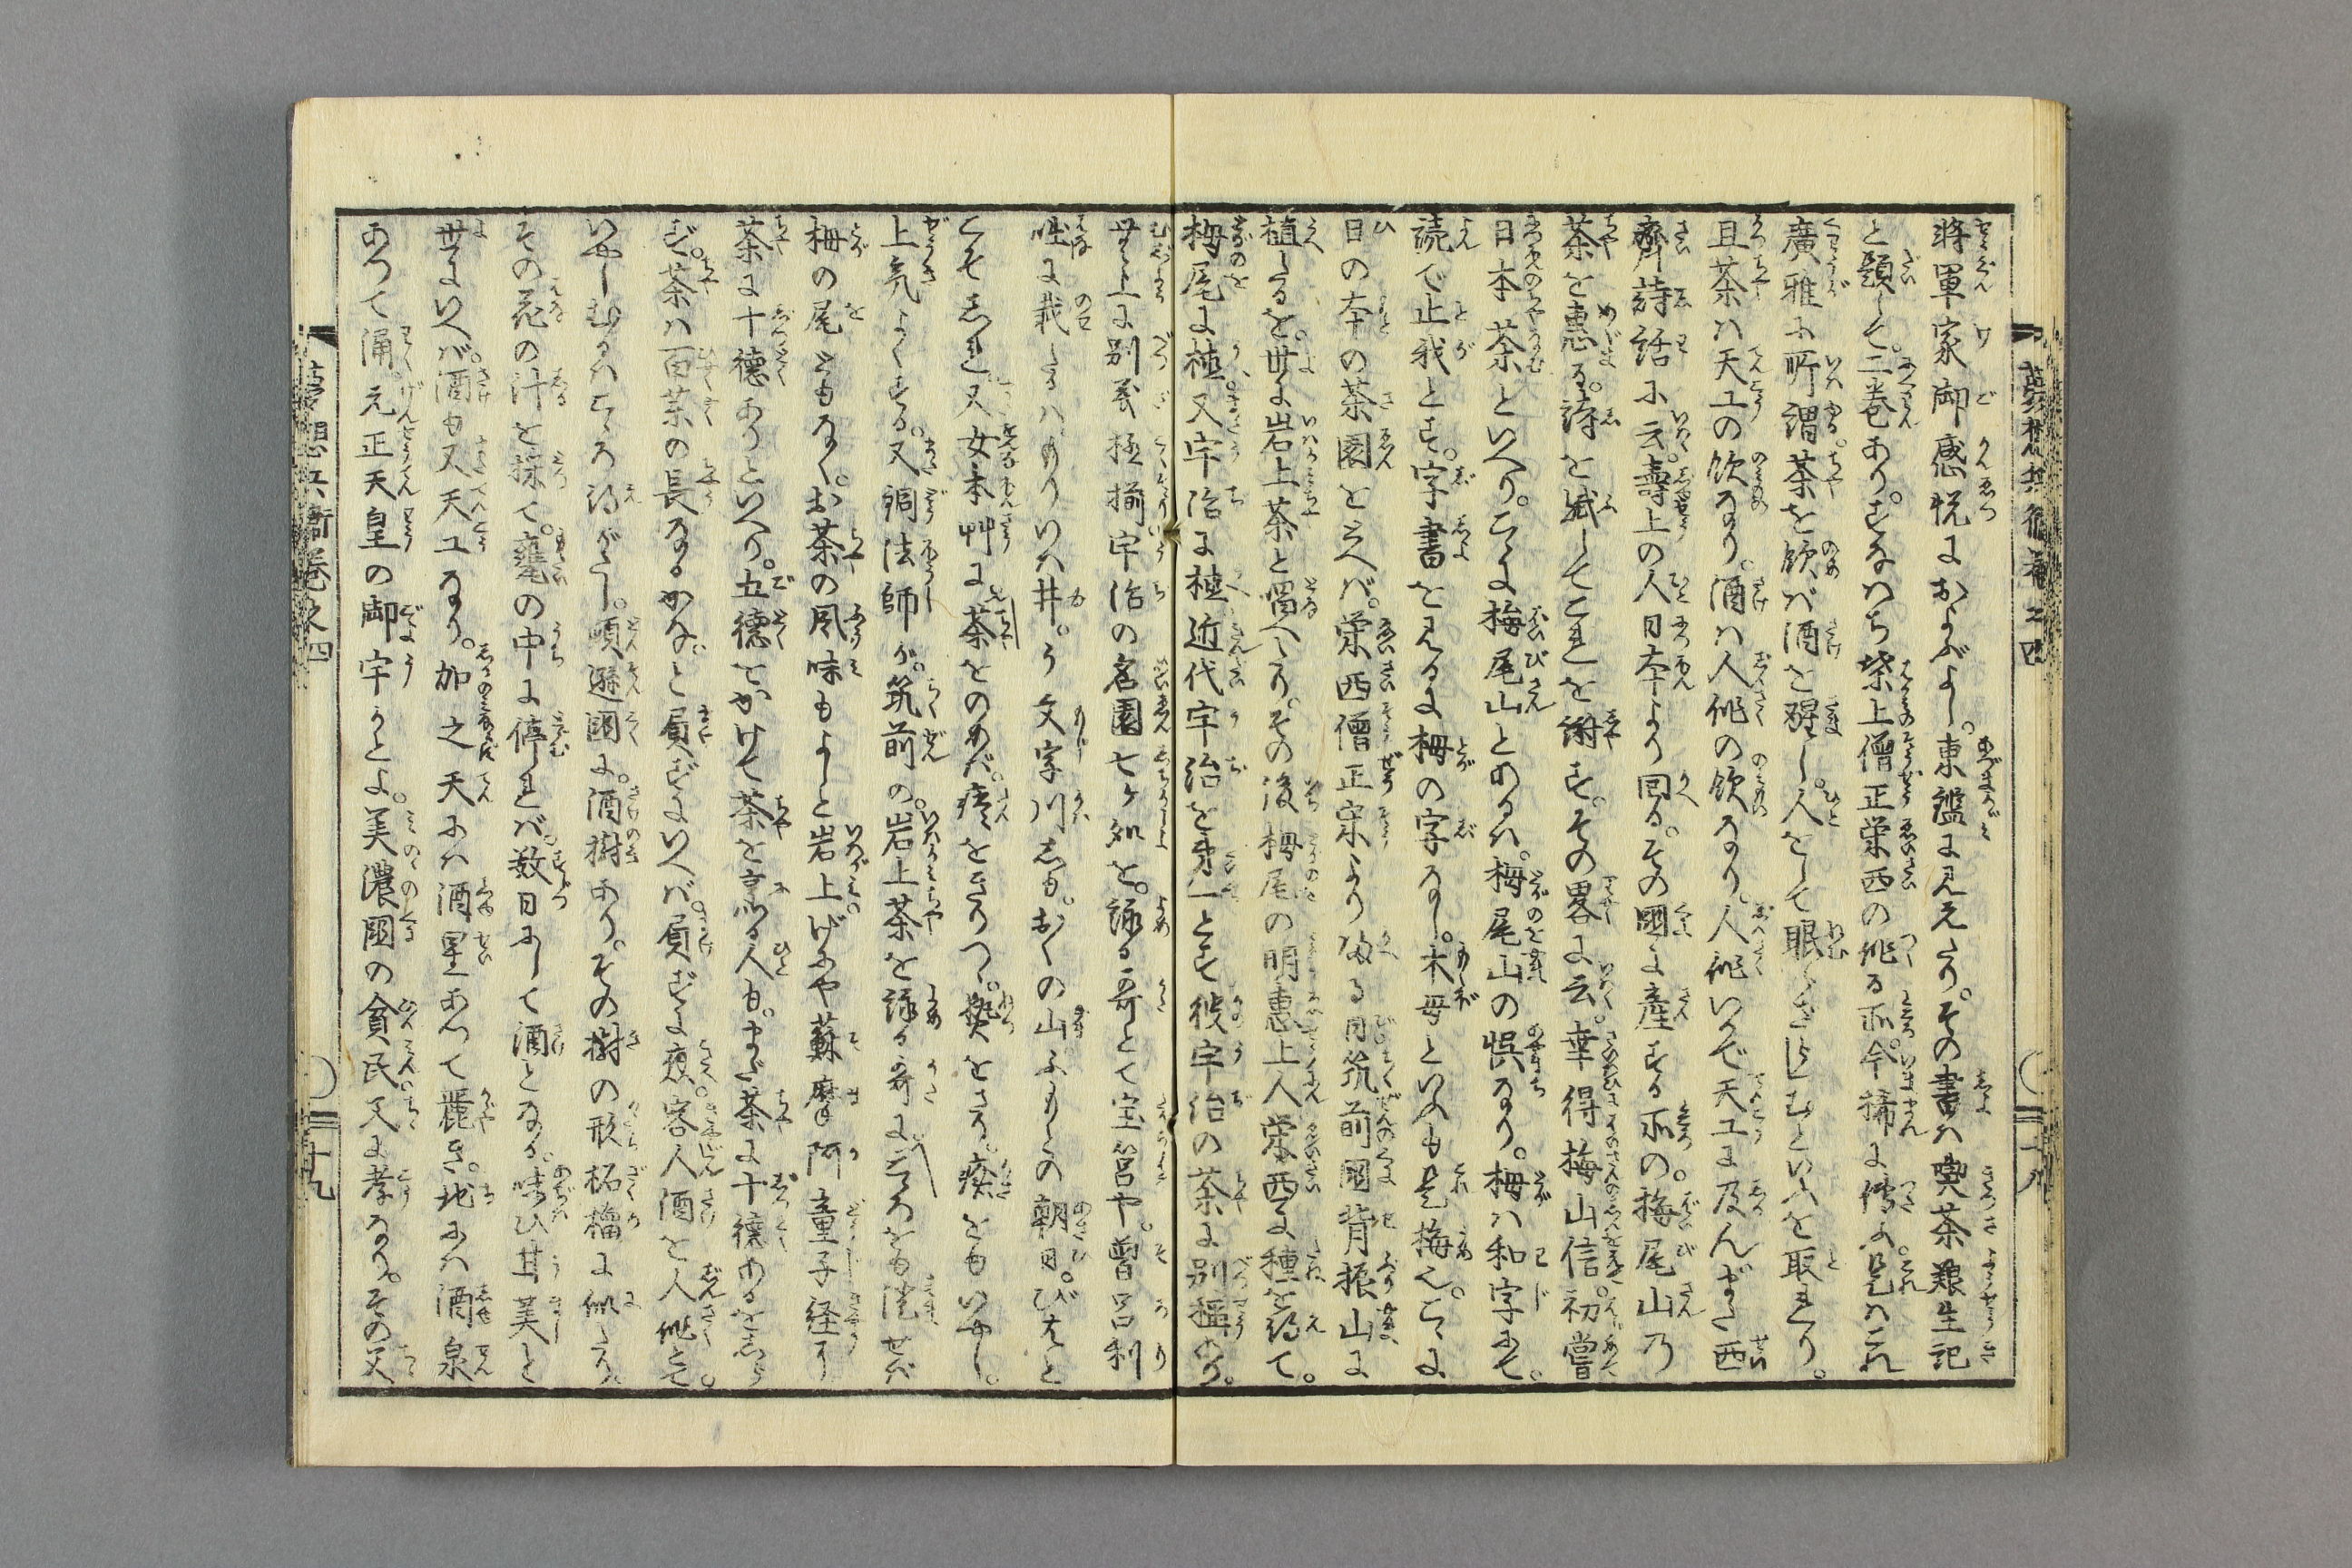 將軍家御感悦におよぶよし。東鑑に見えたり。その書は喫茶養生記
と題して。二巻あり。すなはち葉上僧正栄西の作る所。今猶に傳ふ。是はこれ
廣雅に所謂。茶を飲ば酒を醒し。人をして眠らざらしむといふを取れり。
且茶は天工の飲なり。酒は人作の飲なり。人作いかで天工に及んず。西
齋詩話に云。壽上の人日本より回る。その國に産する所の梅尾山乃
茶を惠る。詩を賦してこれを謝す。その畧に云。幸得梅山信。初嘗
日本茶といへり。こゝに梅尾山とあるは。栂尾山の悮なり。栂は和字にて。
読で止我とす。字書を見るに栂の字なし。木母といふも是梅也。こゝに
日の本の茶園をいへば。栄西僧正宋より帰る日筑前國背振山に
植たるを。世に岩上茶と唱へたり。その後栂尾の明惠上人栄西に種を得て。
栂尾に植。又宇治に植近代宇治を第一とす彼宇治の茶に別種あり。
世上に別義極揃宇治の名園七ヶ処を。詠る哥とて宝莒や。曽呂利
咄に載たるは。もりいは井。う文字川志も。おくの山ふもとの朝日。びはと
こそしれ又女本艸に茶をのめば。痰をきりつゝ。熱をさり。痰をもいやし。
上気よくする。又銅法師が。筑前の。岩上茶を詠る哥にこゝろをも澄せば
栂の尾ともなく。お茶の風味もよしと岩上げにや蘇摩阿童子経に
茶に十徳ありといへり。五徳をかけて茶を烹る人も。まだ茶に十徳あるをしら
ず。茶は百薬の長なるかな。と屓ずにいへば。屓ずに應。客人酒を人作とて。
いやしむるはこゝろ得がたし。頓遜國に。酒樹あり。その樹の形柘榴に似たり。
その花の汁を採て。甕の中に停れば。数日にして酒となる。味ひ甘美と
世にいへば。酒も又天工なり。加之天には酒星あつて麗き。地には酒泉
あつて涌。元正天皇の御宇かとよ。美濃國の貧民。父に孝なり。その父
夢想兵衛巻之四
十九